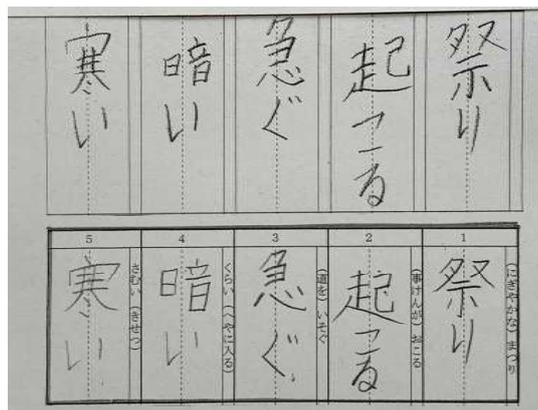 祭り
起こる
急ぐ
暗い
寒い
1
(にぎやかな) まつり
祭り
2
(事けんが) おこる
起こる
3
(道を) いそぐ
急ぐ
4
くらい (へやに入る)
暗い
5
さむい (きせつ)
寒い